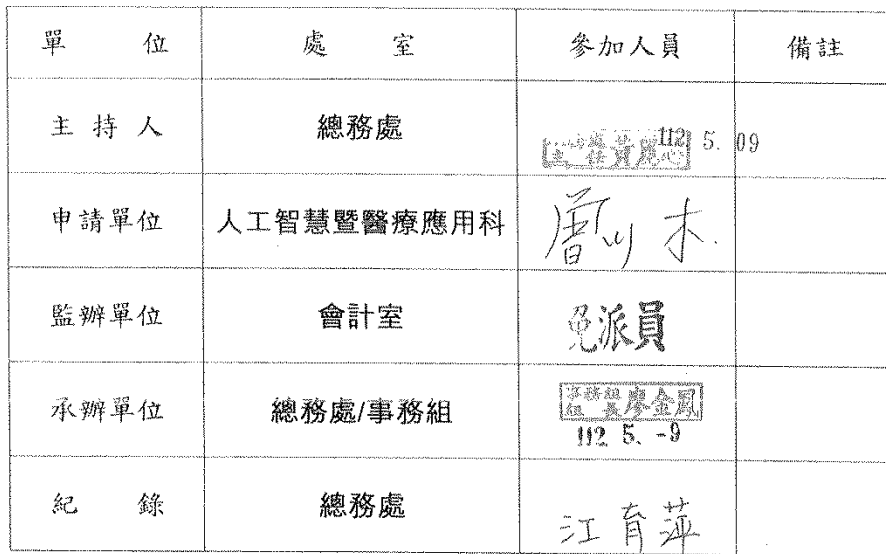 單 位 處 室 參加人員 備註
主 持 人 總務處 主任黃麗心 112 5. 09
申請單位 人工智慧暨醫療應用科
監辦單位 會計室 免派員
承辦單位 總務處/事務組 事務組組長廖金鳳
112 5. -9
紀 錄 總務處 江育萍